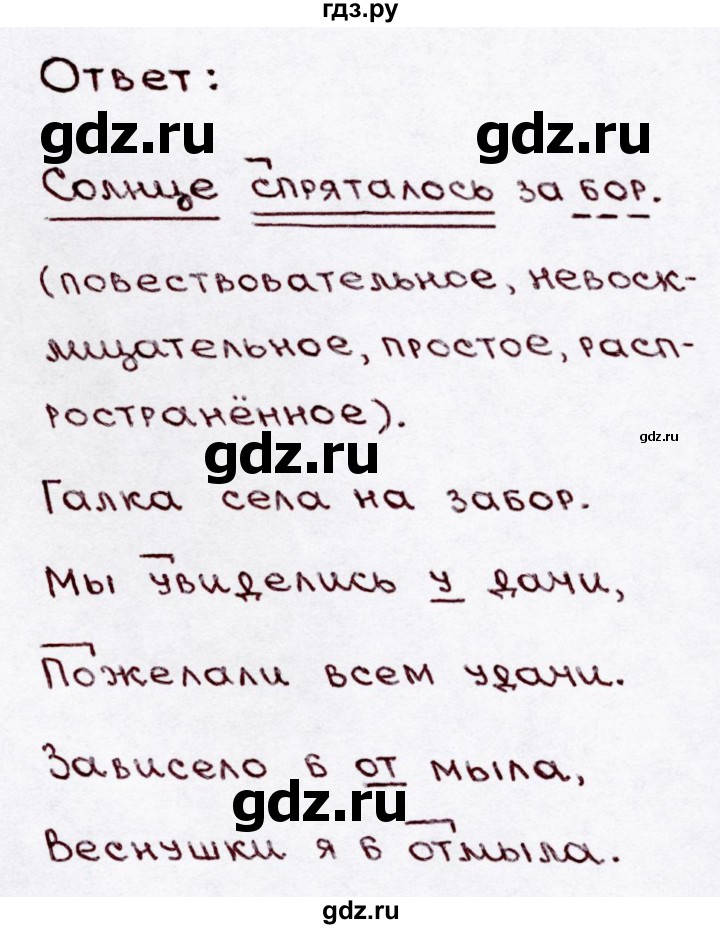 гдз.ру
Ответ:
gdz.ru gdz.ru
Солнце спряталось за бор.
(повествовательное, невоск-
лицательное, простое, расп-
ространённое).
gdz.ru gdz.ru
Галка села на забор.
Мы увиделись у дачи,
Пожелали всем удачи.
Зависело б от мыла,
gdz.ru
Веснушки я б отмыла.
gdz.ru